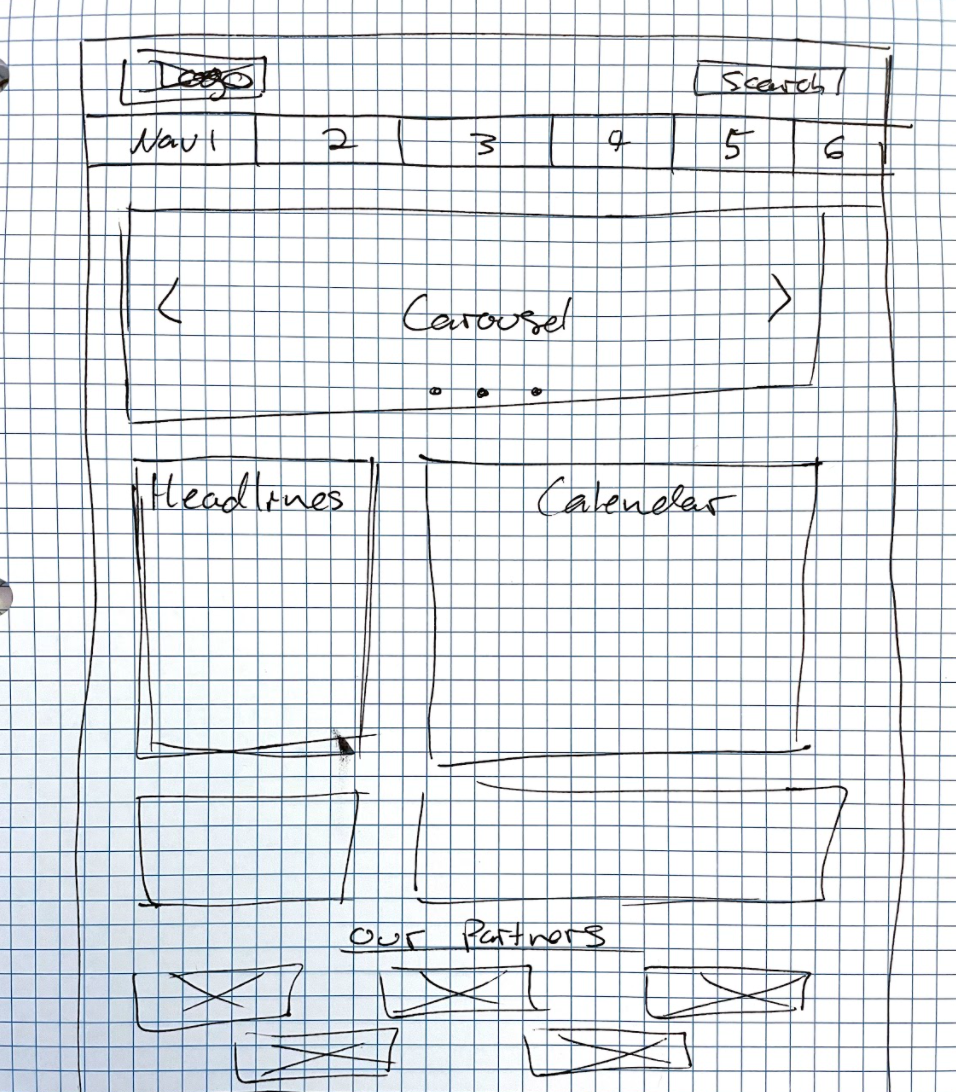 Logo
Search
Nav 1 2 3 4 5 6
< Carousel >
Headlines
Calendar
Our Partners